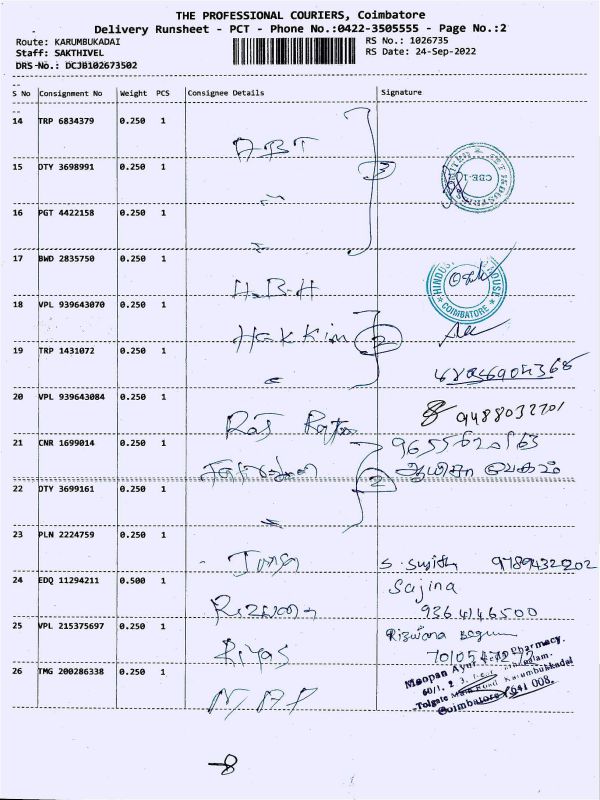 THE PROFESSIONAL COURIERS, Coimbatore
Delivery Runsheet - PCT - Phone No.:0422-3505555 - Page No.:2
Route: KARUMBUKADAI RS No.: 1026735
Staff: SAKTHIVEL RS Date: 24-Sep-2022
DRS No.: DCJB102673502
S No Consignment No Weight PCS Consignee Details Signature
14 TRP 6834379 0.250 1
ABT
15 DTY 3698991 0.250 1 3 CBE-1
16 PGT 4422158 0.250 1
17 BWD 2835750 0.250 1
HINDUS
COIMBATORE
18 VPL 939643070 0.250 1
Hakkim 2
19 TRP 1431072 0.250 1
20 VPL 939643084 0.250 1
9488032701
Raj
21 CNR 1699014 0.250 1
ஆயிசா பேகம்
2
22 DTY 3699161 0.250 1
23 PLN 2224759 0.250 1
S. Sujith 9789432202
24 EDQ 11294211 0.500 1 Sajina
9364146500
25 VPL 215375697 0.250 1 Rizwana Begum
Riyas
Moopan Ayur Pharmacy.
26 TMG 200286338 0.250 1
60/1,
Tolgate Main Road Karumbukkadai
Coimbatore 641 008.
8